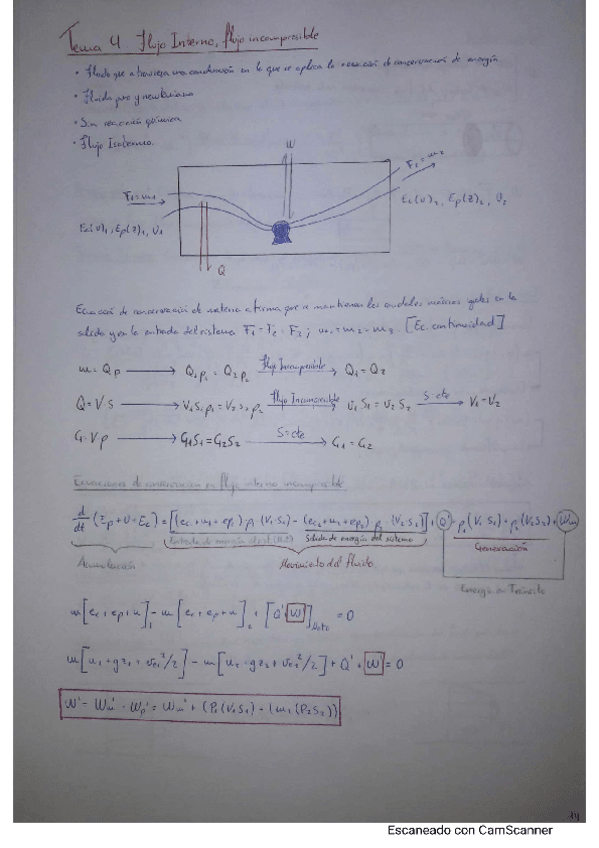 Tema 4 Flujo Interno, flujo incompresible
• Fluido que atraviesa una conducción en la que se aplica la ecuación de conservación de energía
• Fluido puro y newtoniano
• Sin reacción química
• Flujo Isotermo.
W
F₂ = m₂
F₁ = m₁
Ec(v)₂, Ep(z)₂, U₂
Ec(v)₁, Ep(z)₁, U₁
Q
Ecuación de conservación de materia afirma que se mantienen los caudales másicos iguales en la
salida y en la entrada del sistema F₁ = F₂ = F₃ ; m₁ = m₂ = m₃. [Ec. continuidad]
m = Qρ → Q₁ρ₁ = Q₂ρ₂ Flujo Incompresible → Q₁ = Q₂
Q = V S → V₁S₁ρ₁ = V₂S₂ρ₂ Flujo Incompresible → V₁S₁ = V₂S₂ S=cte → V₁ = V₂
G = Vρ → G₁S₁ = G₂S₂ S=cte → G₁ = G₂
Ecuaciones de conservación en flujo interno incompresible
Acumulación
Salida de energía del sistema
Movimiento del fluido
Generación
Energía en Tránsito
m[u₁ + gz₁ + v₁²/2] - m[u₂ + gz₂ + v₂²/2] + Q' + W = 0
14
Escaneado con CamScanner